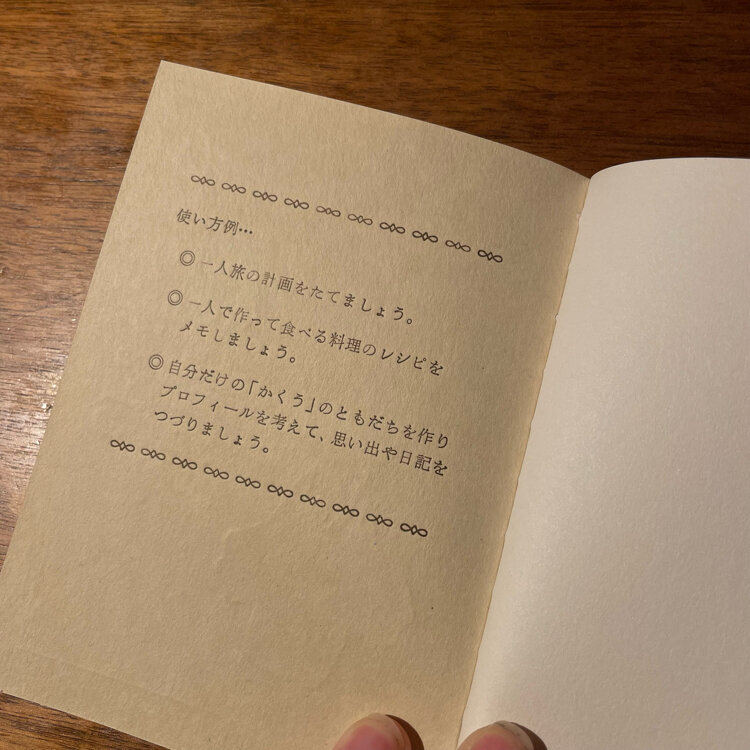 使い方例…
◎一人旅の計画をたてましょう。
◎一人で作って食べる料理のレシピを
メモしましょう。
◎自分だけの「かくう」のともだちを作り
プロフィールを考えて、思い出や日記を
つづりましょう。